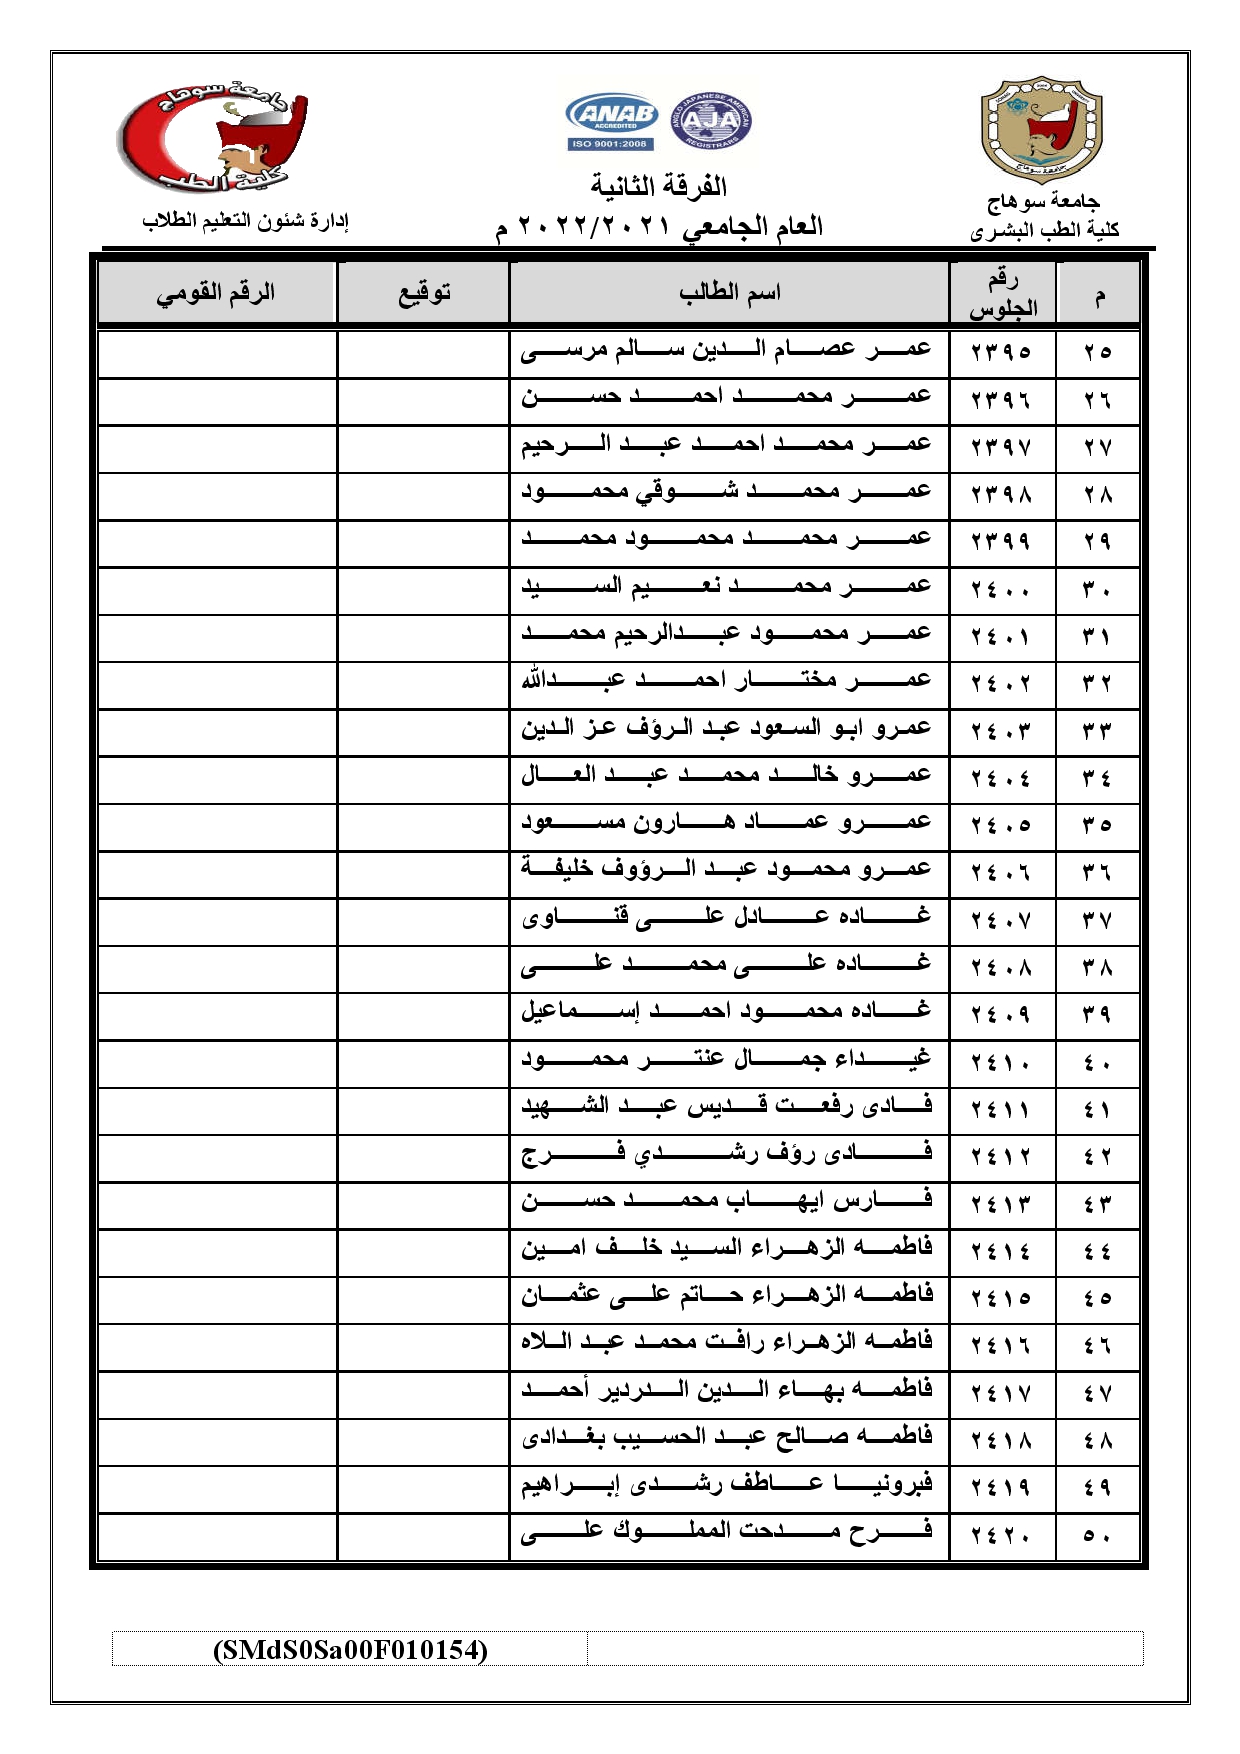 جامعة سوهاج
كلية الطب
ANAB
ACCREDITED
ISO 9001:2008
ANGLO JAPANESE AMERICAN
AJA
REGISTRARS
جامعة سوهاج
جامعة سوهاج
كلية الطب البشرى
الفرقة الثانية
العام الجامعي ٢٠٢٢/٢٠٢١ م
إدارة شئون التعليم الطلاب
م رقم الجلوس اسم الطالب توقيع الرقم القومي
٢٥ ٢٣٩٥ عمر عصام الدين سالم مرسى
٢٦ ٢٣٩٦ عمر محمد احمد حسن
٢٧ ٢٣٩٧ عمر محمد احمد عبد الرحيم
٢٨ ٢٣٩٨ عمر محمد شوقي محمود
٢٩ ٢٣٩٩ عمر محمد محمود محمد
٣٠ ٢٤٠٠ عمر محمد نعيم السيد
٣١ ٢٤٠١ عمر محمود عبدالرحيم محمد
٣٢ ٢٤٠٢ عمر مختار احمد عبدالله
٣٣ ٢٤٠٣ عمرو ابو السعود عبد الرؤف عز الدين
٣٤ ٢٤٠٤ عمرو خالد محمد عبد العال
٣٥ ٢٤٠٥ عمرو عماد هارون مسعود
٣٦ ٢٤٠٦ عمرو محمود عبد الرؤوف خليفة
٣٧ ٢٤٠٧ غاده عادل على قناوى
٣٨ ٢٤٠٨ غاده على محمد على
٣٩ ٢٤٠٩ غاده محمود احمد إسماعيل
٤٠ ٢٤١٠ غيداء جمال عنتر محمود
٤١ ٢٤١١ فادى رفعت قديس عبد الشهيد
٤٢ ٢٤١٢ فادى رؤف رشدي فرج
٤٣ ٢٤١٣ فارس ايهاب محمد حسن
٤٤ ٢٤١٤ فاطمه الزهراء السيد خلف امين
٤٥ ٢٤١٥ فاطمه الزهراء حاتم على عثمان
٤٦ ٢٤١٦ فاطمه الزهراء رافت محمد عبد اللاه
٤٧ ٢٤١٧ فاطمه بهاء الدين الدردير أحمد
٤٨ ٢٤١٨ فاطمه صالح عبد الحسيب بغدادى
٤٩ ٢٤١٩ فبرونيا عاطف رشدى إبراهيم
٥٠ ٢٤٢٠ فرح مدحت المملوك على
(SMdS0Sa00F010154)